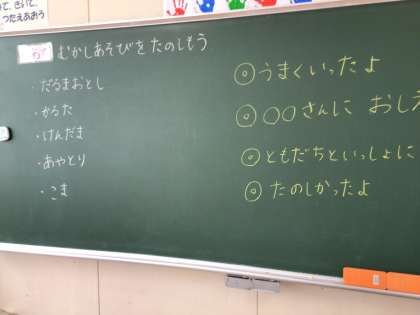 つたえあおう
むかしあそびをたのしもう
・だるまおとし
・かるた
・けんだま
・あやとり
・こま
◎うまくいったよ
◎○○さんに おしえ
◎ともだちといっしょに
◎たのしかったよ